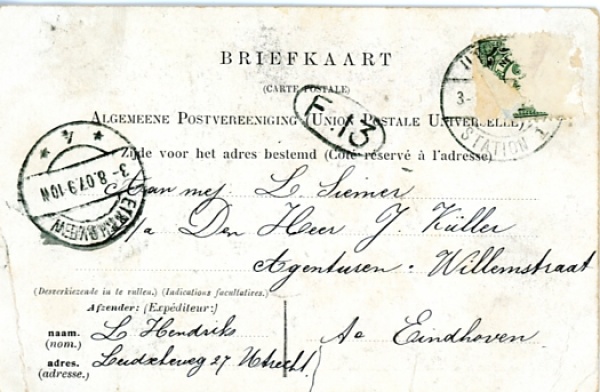 BRIEFKAART
(CARTE POSTALE)
ALGEMEENE POSTVEREENIGING (UNION POSTALE UNIVERSELLE)
Zijde voor het adres bestemd (Côté réservé à l'adresse)
F. 13
3-
STATION 1
3-8.07.9-10N
EINDHOVEN
Aan mej. L. Siemer
Den Heer J. Küller
Agenturen. Willemstraat
(Desverkiezende in te vullen.) (Indications facultatives.)
Afzender: (Expéditeur:)
naam. L Hendriks
(nom.)
Ao Eindhoven
adres. 27 Utrecht
(adresse.)